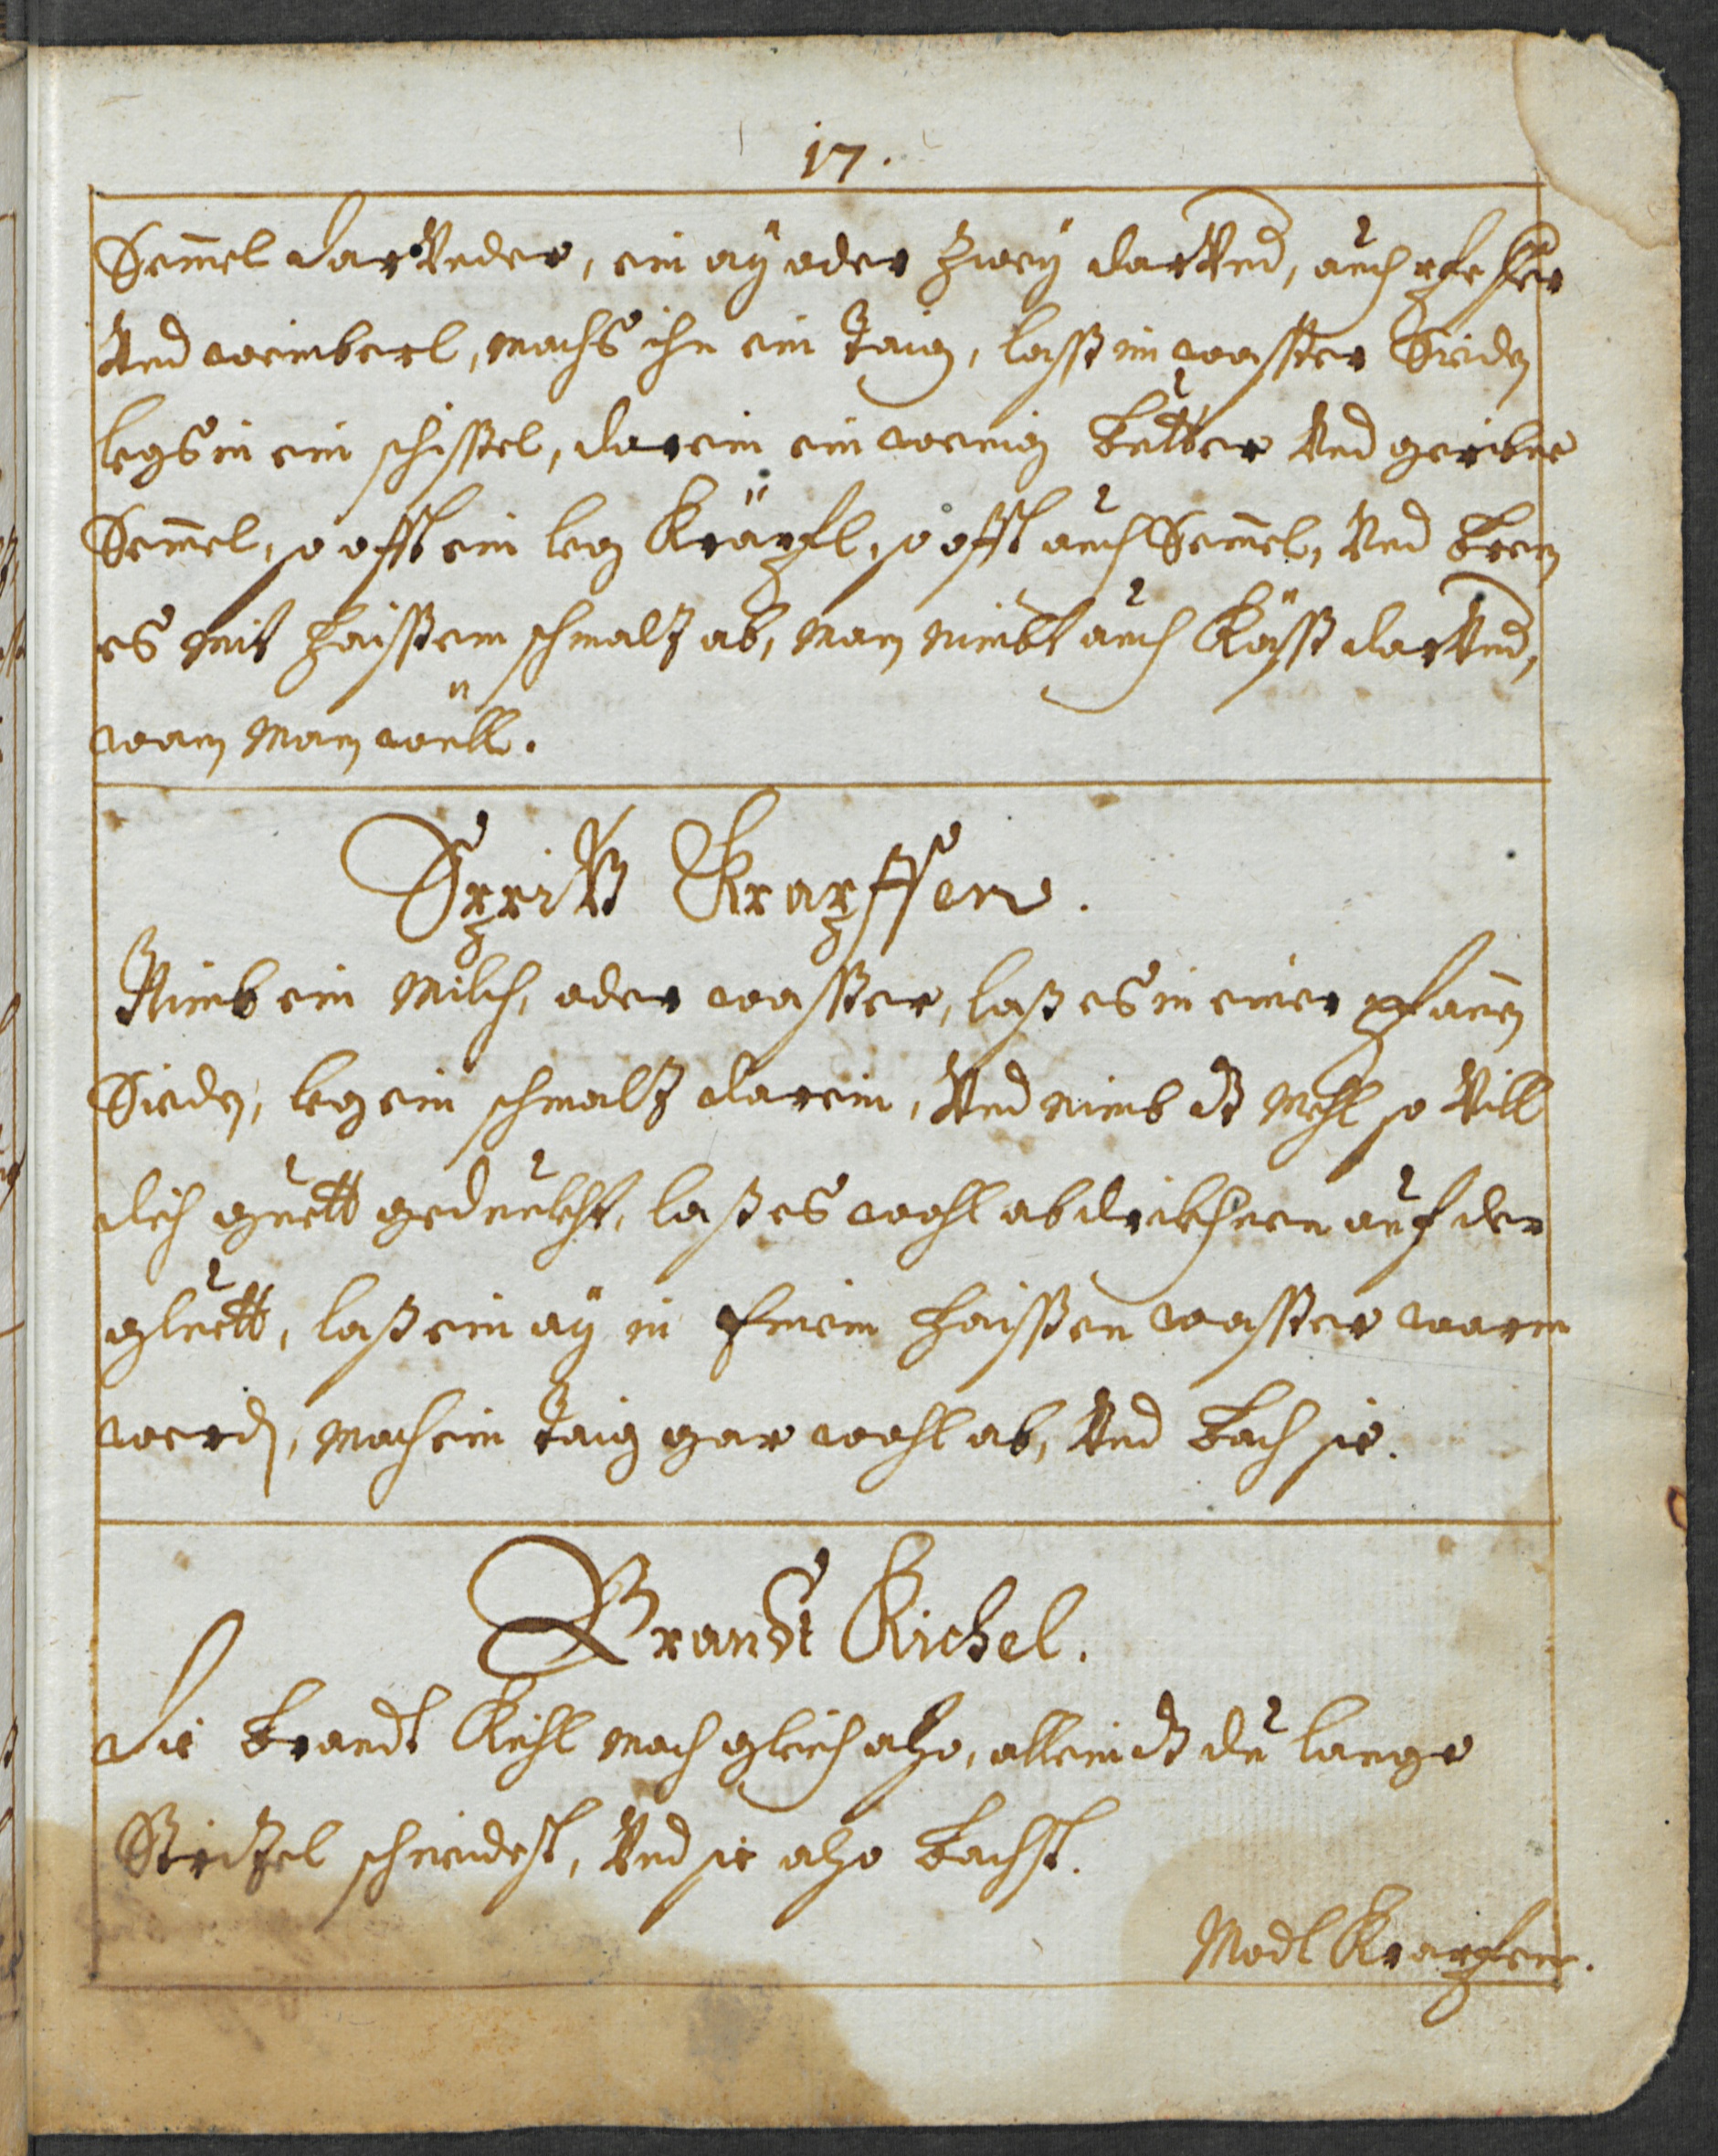 17.
Sem̄el darVnder, ein aÿ oder zweÿ darVnd, auch pfeffer
Vnd weinberl, machs ihn ein Taig, lasst im wasser Sieden
legs in ein schissel, darein ein wenig Butter Vnd geribne
Sem̄el, so offt ein leg Kräpfl, so offt auch Sem̄el, Vnd bren
es mit haissem schmalz ab, man nimbt auch Käss darVnd,
wan man wüll.
Spritz Krapffen.
Nimb ein Milch, oder wasser, lass es in einer pfan̄en
Sieden, leg ein schmalz darein, Vnd nimb dz Mehl so Vill
dich guett gedunckht, lass es wohl abdrickhnen auf der
gluett, lass ein aÿ in einem haissen wasser warm
werden, mach ein Taig gar wohl ab, Vnd bach sie.
Brandt Kichel.
Die brandt Kichl mach gleich also, allein dz du lange
Stritzel schneidest, Vnd sie also bachst.
Modl Krapfen.